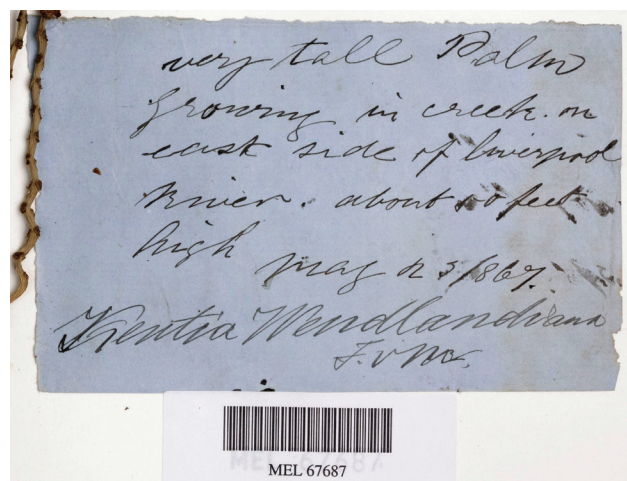 very tall Palm
growing in creek. on
east side of liverpool
River. about 50 feet
high may 23 1867.
Kentia Wendlandiana
F.v M.
MEL 67687